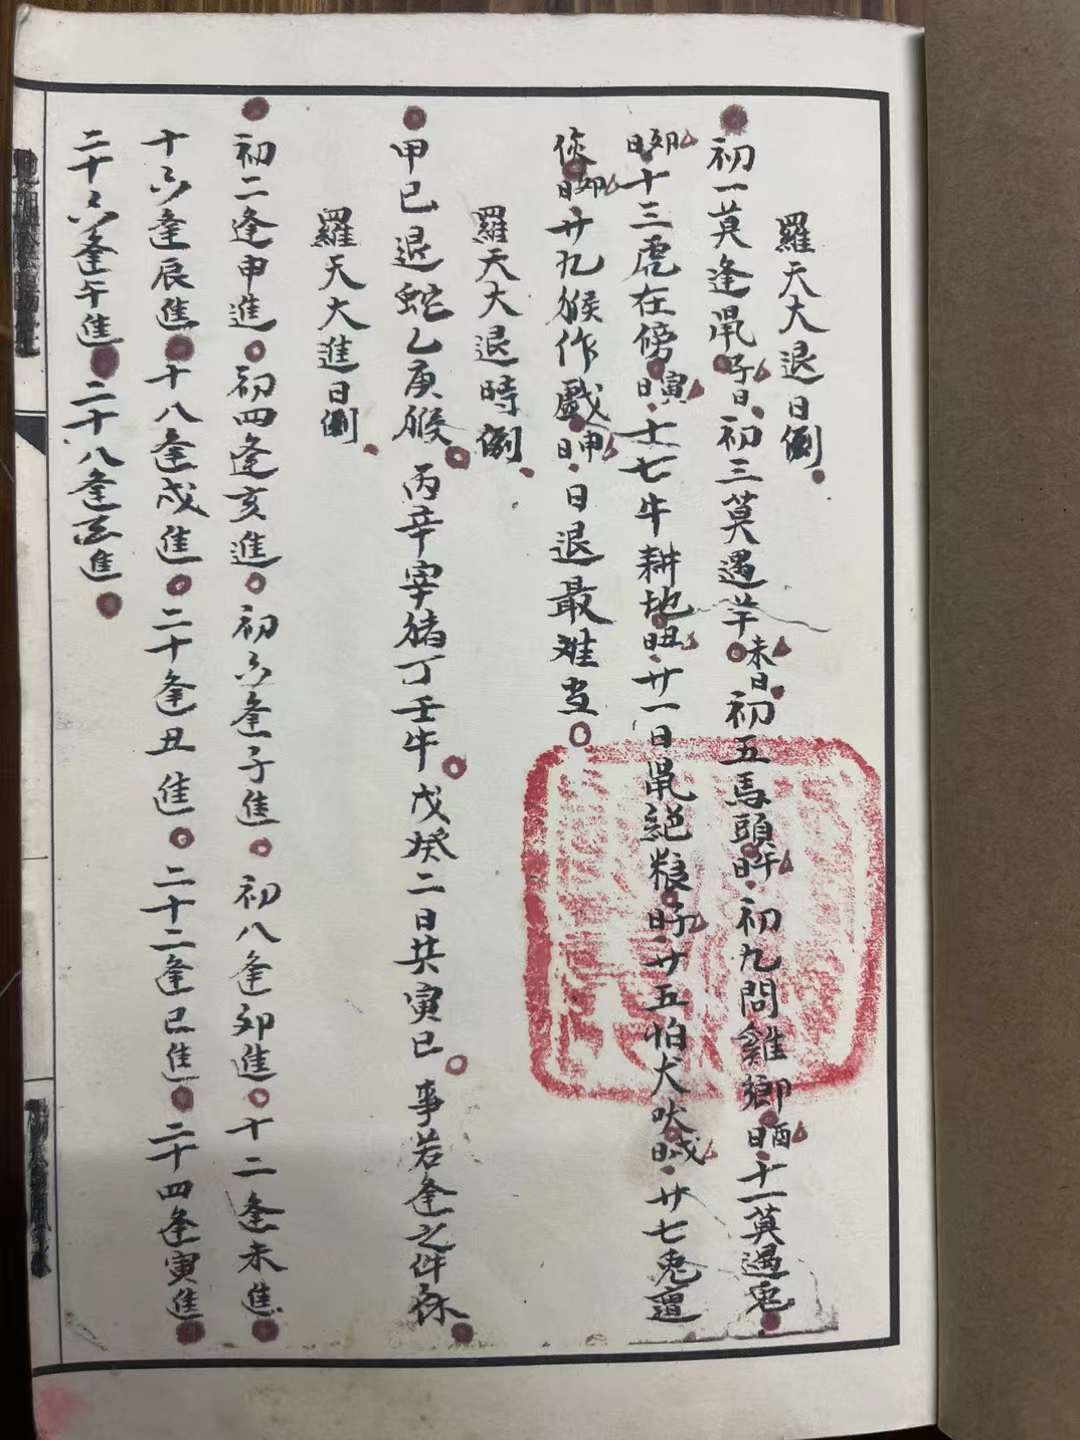 羅天大退日例
初一莫逢鼠子日初三莫遇羊未日初五馬頭午日初九問雞鄉酉日十一莫遇兔
卯日十三虎在傍寅日十七牛耕地丑日廿一日鼠絕粮子日廿五怕犬吠戌日廿七兎遭
傷卯日廿九猴作戲申日日退最难当
羅天大退時例
甲己退蛇乙庚猴丙辛宰猪丁壬牛戊癸二日共寅巳事若逢之件休
羅天大進日例
初二逢申進初四逢亥進初六逢子進初八逢卯進十二逢未進
十六逢辰進十八逢戌進二十逢丑進二十二逢巳進二十四逢寅進
二十六逢午進二十八逢亥進